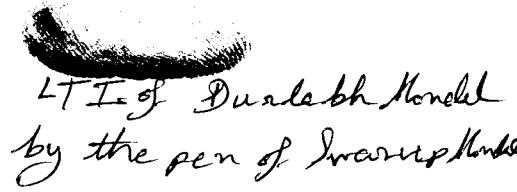 LTI of Durlabh Mondal
by the pen of Swarup Mondal